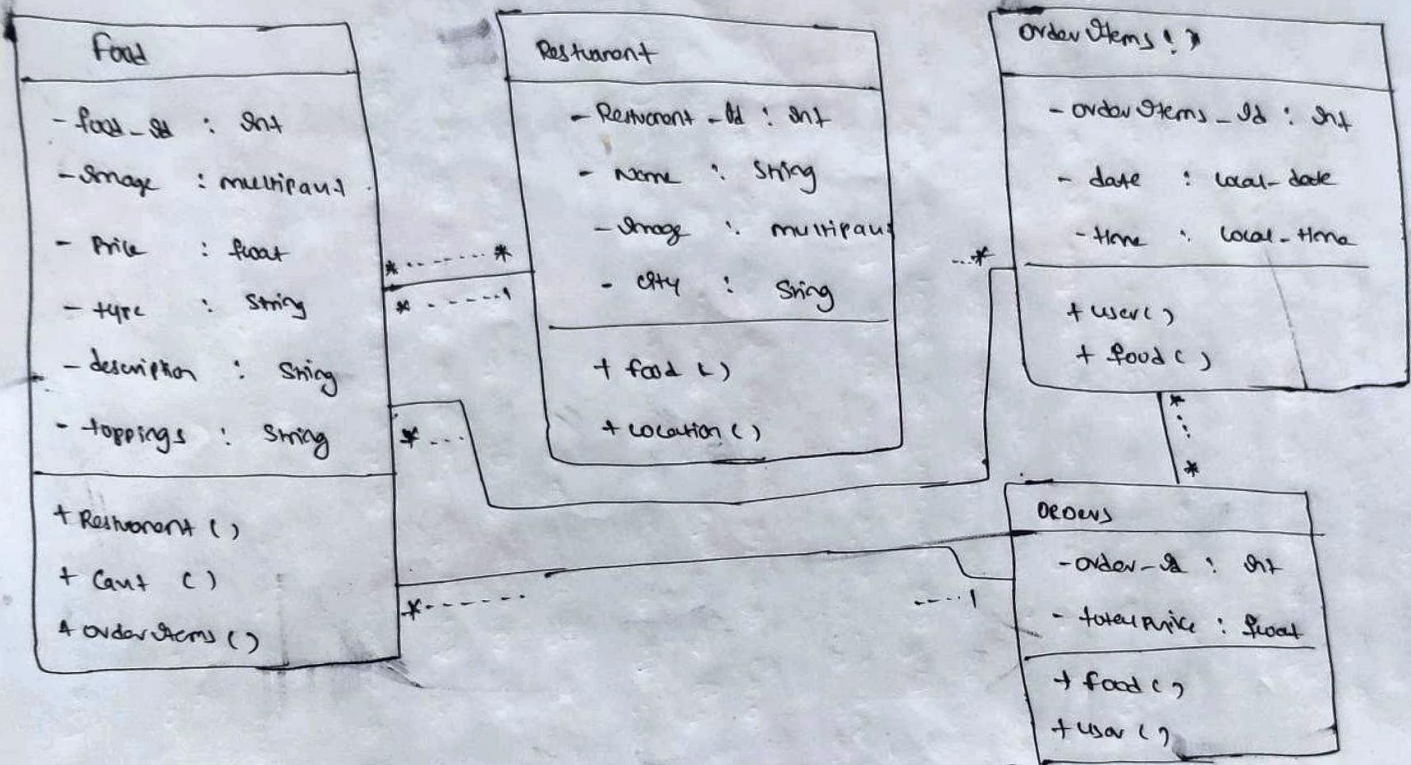 Food
- food_Id : Int
- Image : multipaut
- Price : float
- type : String
- description : String
- toppings : String
+ Restuarant ( )
+ Cart ( )
+ orderItems ( )
* ------- *
* ------ 1
* ---
* -------
Restuarant
- Restuarant_Id : Int
- Name : String
- Image : multipaut
- City : String
+ food ( )
+ Location ( )
OrderItems
- orderItems_Id : Int
- date : local_date
- time : local_time
+ user ( )
+ food ( )
...*
*
*
---- 1
ORDERS
- order_Id : Int
- totalPrice : float
+ food ( )
+ user ( )